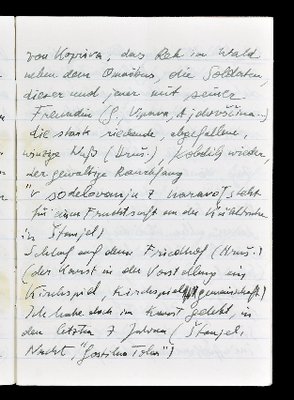 von Kopriva, das Reh im Wald
neben dem Omnibus, die Soldaten,
dieser und jener mit seiner
Freundin (S., Vipava, Ajdovščina..)
die stark riechende, abgefallene,
winzige Nuß (Hruš.), Kobdilj wieder,
der gewaltige Rauchfang
"V sodelovanju z naravo" steht
für einen Fruchtsaft an der
in Štanjel)
Schlaf auf dem Friedhof (Hruš.)
(der Karst in der Vorstellung ein
Kirchspiel, Kirchspielgemeinschaft)
Ich habe doch im Karst gelebt, in
den letzten 7 Jahren (Štanjel,
Nacht, "Gostilna")